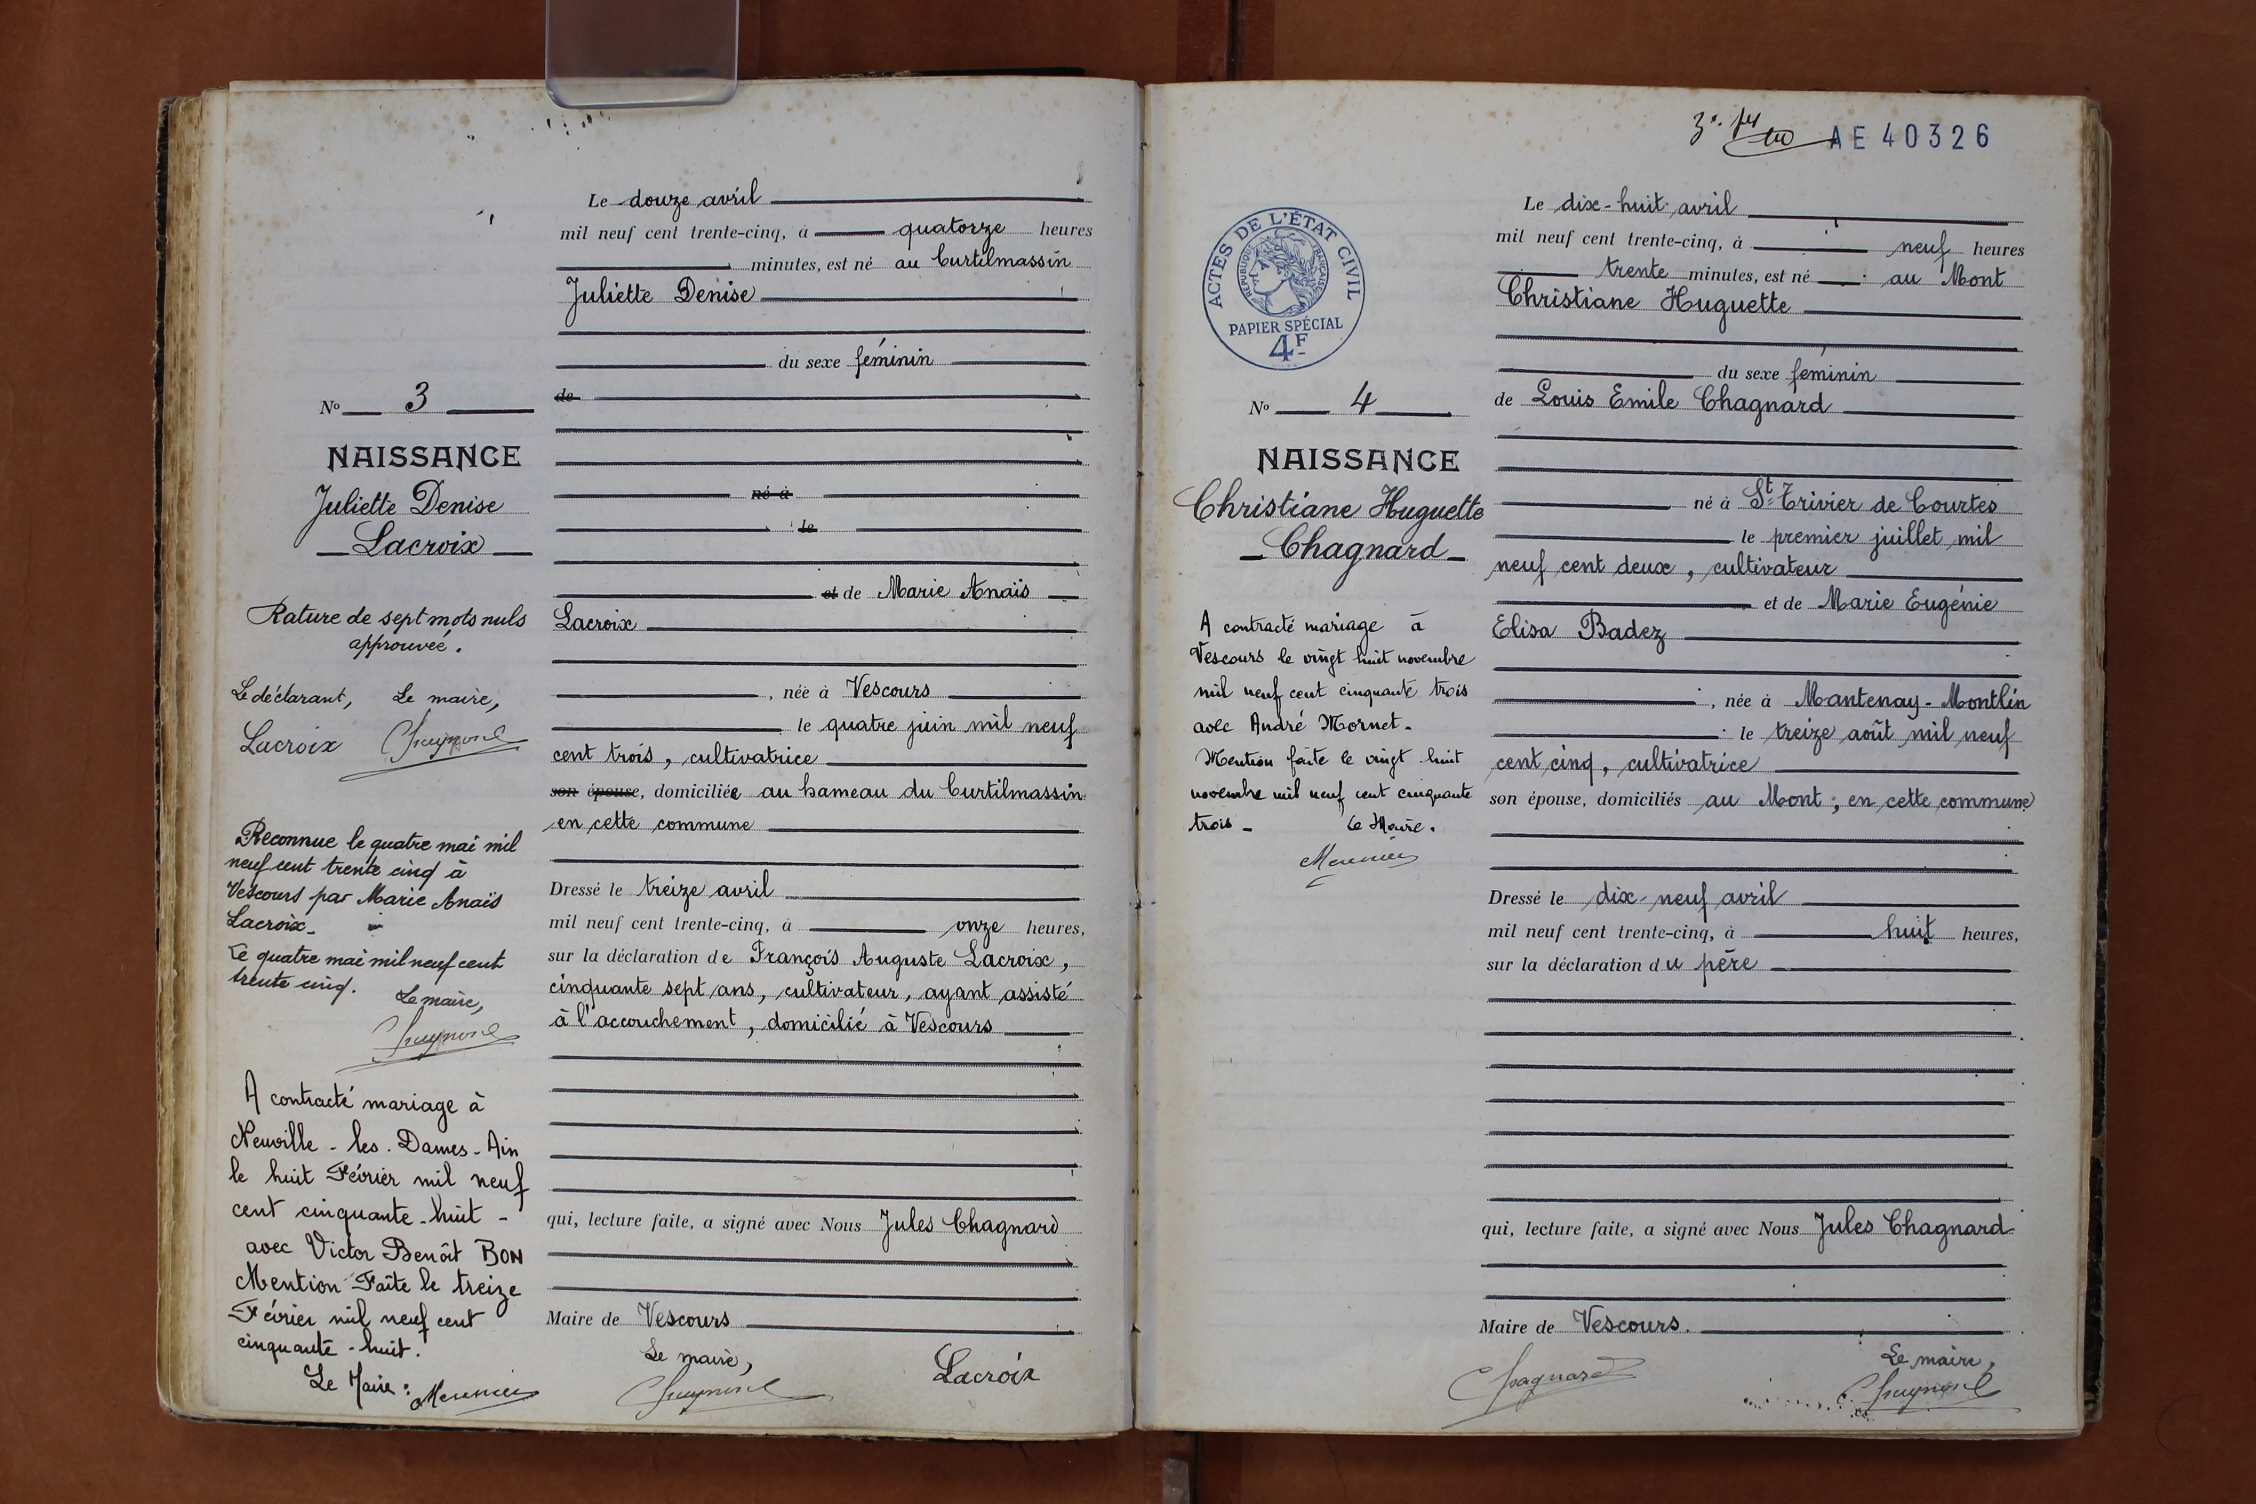 Le douze avril
mil neuf cent trente-cinq, à quatorze heures
minutes, est né au Curtilmassin
Juliette Denise
du sexe féminin
de
né à
le
et de Marie Anaïs
Lacroix
, née à Vescours
le quatre juin mil neuf
cent trois, cultivatrice
son épouse, domiciliée au hameau du Curtilmassin
en cette commune
Dressé le treize avril
mil neuf cent trente-cinq, à onze heures,
sur la déclaration de François Auguste Lacroix,
cinquante sept ans, cultivateur, ayant assisté
à l'accouchement, domicilié à Vescours
qui, lecture faite, a signé avec Nous Jules Chagnard
Maire de Vescours
Le maire,
Lacroix
No 3
NAISSANCE
Juliette Denise
Lacroix
Rature de sept mots nuls
approuvée.
Le déclarant, Le maire,
Lacroix
Reconnue le quatre mai mil
neuf cent trente cinq à
Vescours par Marie Anaïs
Lacroix
Le quatre mai mil neuf cent
trente cinq.
Le maire,
A contracté mariage à
Neuville-les-Dames-Ain
le huit Février mil neuf
cent cinquante-huit-
avec Victor Benoît BON
Mention Faîte le treize
Février mil neuf cent
cinquante-huit.
Le Maire: Meunier
AE 40326
ACTES DE L'ÉTAT CIVIL
RÉPUBLIQUE FRANÇAISE
PAPIER SPÉCIAL
4F
No 4
NAISSANCE
Christiane Huguette
Chagnard
A contracté mariage à
Vescours le vingt huit novembre
mil neuf cent cinquante trois
avec André Mornet-
Mention faite le vingt huit
novembre mil neuf cent cinquante
trois- Le Maire.
Meunier
Le dix-huit avril
mil neuf cent trente-cinq, à neuf heures
trente minutes, est né au Mont
Christiane Huguette
du sexe féminin
de Louis Emile Chagnard
né à St-Trivier de Courtes
le premier juillet mil
neuf cent deux, cultivateur
et de Marie Eugénie
Elisa Badez
, née à Mantenay-Montlin
le treize août mil neuf
cent cinq, cultivatrice
son épouse, domiciliés au Mont, en cette commune
Dressé le dix-neuf avril
mil neuf cent trente-cinq, à huit heures,
sur la déclaration du père
qui, lecture faite, a signé avec Nous Jules Chagnard
Maire de Vescours.
Le maire,
Chagnard